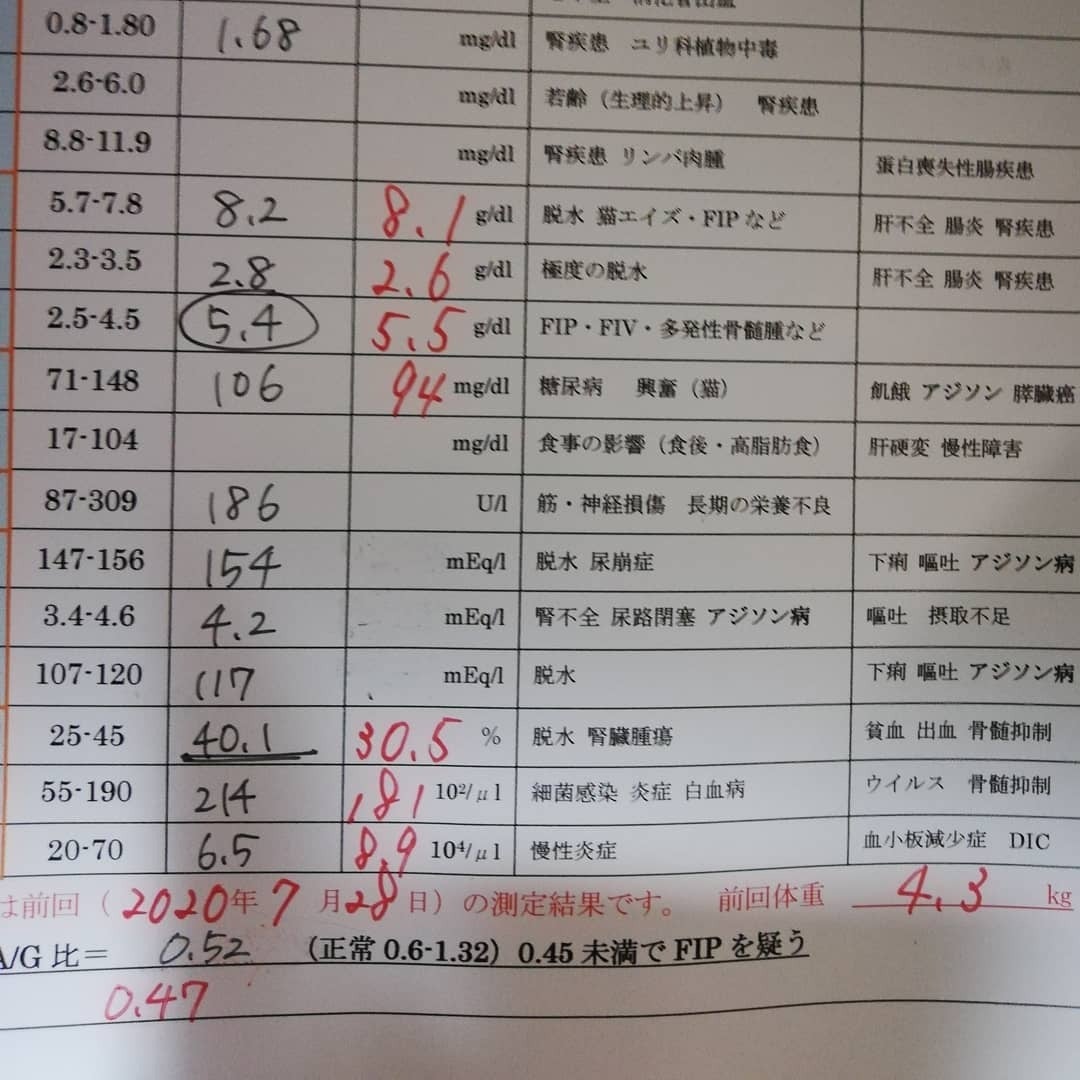 0.8-1.80 1.68 mg/dl 腎疾患 ユリ科植物中毒
2.6-6.0 mg/dl 若齢（生理的上昇） 腎疾患
8.8-11.9 mg/dl 腎疾患 リンパ肉腫 蛋白喪失性腸疾患
5.7-7.8 8.2 8.1 g/dl 脱水 猫エイズ・FIPなど 肝不全 腸炎 腎疾患
2.3-3.5 2.8 2.6 g/dl 極度の脱水 肝不全 腸炎 腎疾患
2.5-4.5 5.4 5.5 g/dl FIP・FIV・多発性骨髄腫など
71-148 106 94 mg/dl 糖尿病 興奮（猫） 飢餓 アジソン 膵臓癌
17-104 mg/dl 食事の影響（食後・高脂肪食） 肝硬変 慢性障害
87-309 186 U/l 筋・神経損傷 長期の栄養不良
147-156 154 mEq/l 脱水 尿崩症 下痢 嘔吐 アジソン病
3.4-4.6 4.2 mEq/l 腎不全 尿路閉塞 アジソン病 嘔吐 摂取不足
107-120 117 mEq/l 脱水 下痢 嘔吐 アジソン病
25-45 40.1 30.5 % 脱水 腎臓腫瘍 貧血 出血 骨髄抑制
55-190 214 181 10²/μl 細菌感染 炎症 白血病 ウイルス 骨髄抑制
20-70 6.5 8.9 10⁴/μl 慢性炎症 血小板減少症 DIC
は前回（2020年7月28日）の測定結果です。 前回体重 4.3 kg
A/G比＝ 0.52 （正常 0.6-1.32）0.45未満でFIPを疑う
0.47